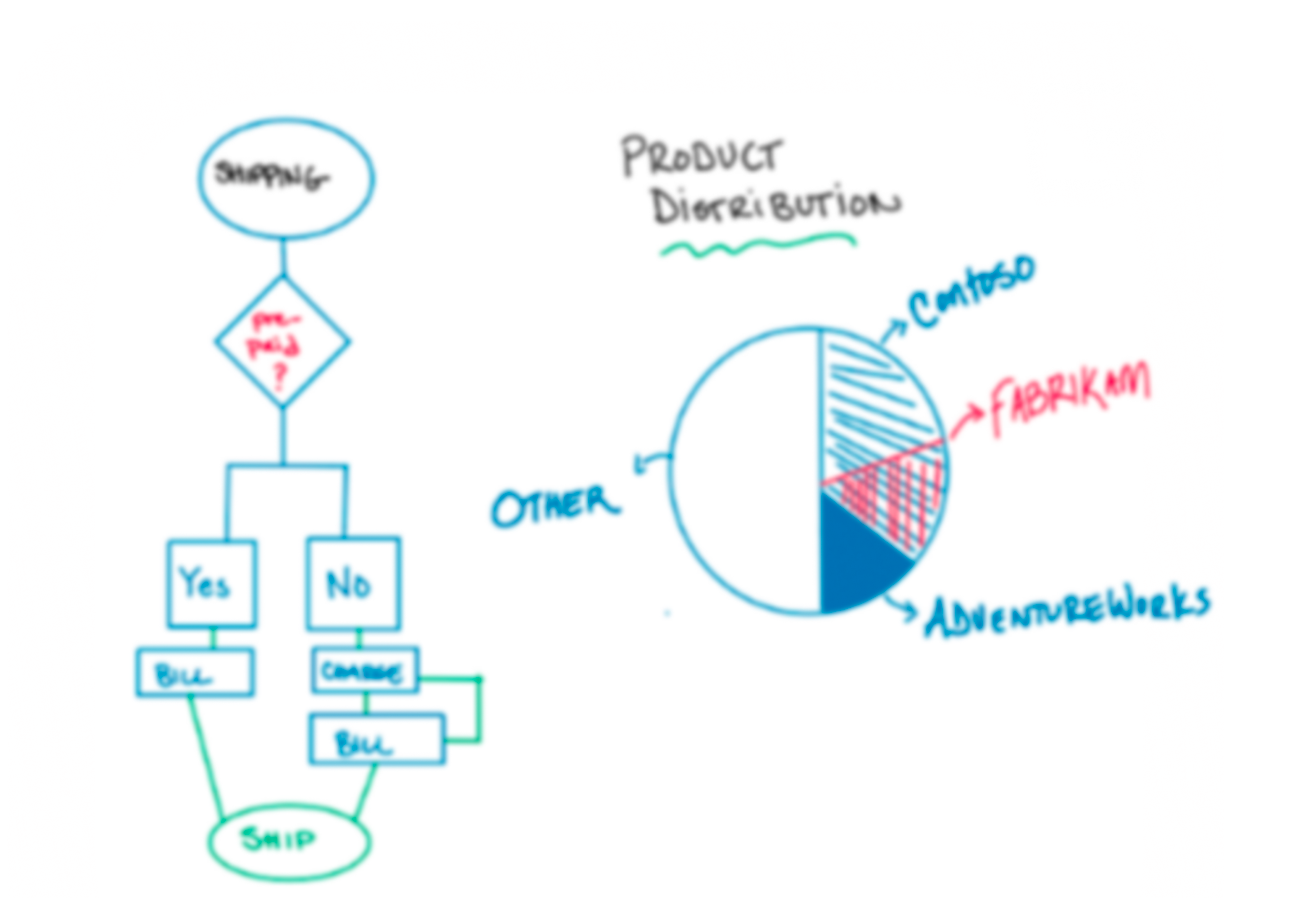 SHIPPING
pre-
paid
?
Yes
No
BILL
CHARGE
BILL
SHIP
PRODUCT
DISTRIBUTION
Contoso
FABRIKAM
OTHER
ADVENTUREWORKS